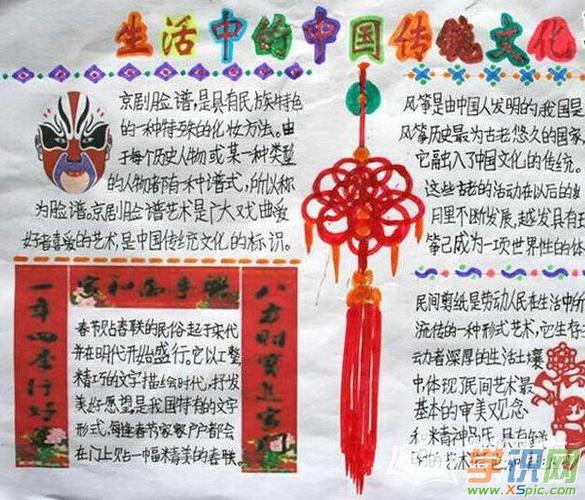 生活中的中国传统文化
京剧脸谱,是具有民族特色
的一种特殊的化妆方法。由
于每个历史人物或某一种类型
的人物都有一种谱式,所以称
为脸谱。京剧脸谱艺术是广大戏曲爱
好者喜爱的艺术,是中国传统文化的标识。
家和万事兴
一年四季行好运
八方财宝进家门
春节贴春联的民俗起于宋代
并在明代开始盛行。它以工整
精巧的文字描绘时代,抒发
美好愿望,是我国特有的文字
形式,每逢春节家家户户都会
在门上贴一幅精美的春联。
风筝是由中国人发明的,我国是
风筝历史最为古老悠久的国家,
它融入了中国文化的传统。
这些古老的活动在以后的
月里不断发展,越发具有
筝已成为一项世界性的体
民间剪纸是劳动人民在生活中
流传的一种形式艺术,它生存
动者深厚的生活土壤
中体现了民间艺术最
基本的审美观念
和精神品质,具有
明的艺术
学识网
www.XSpic.com